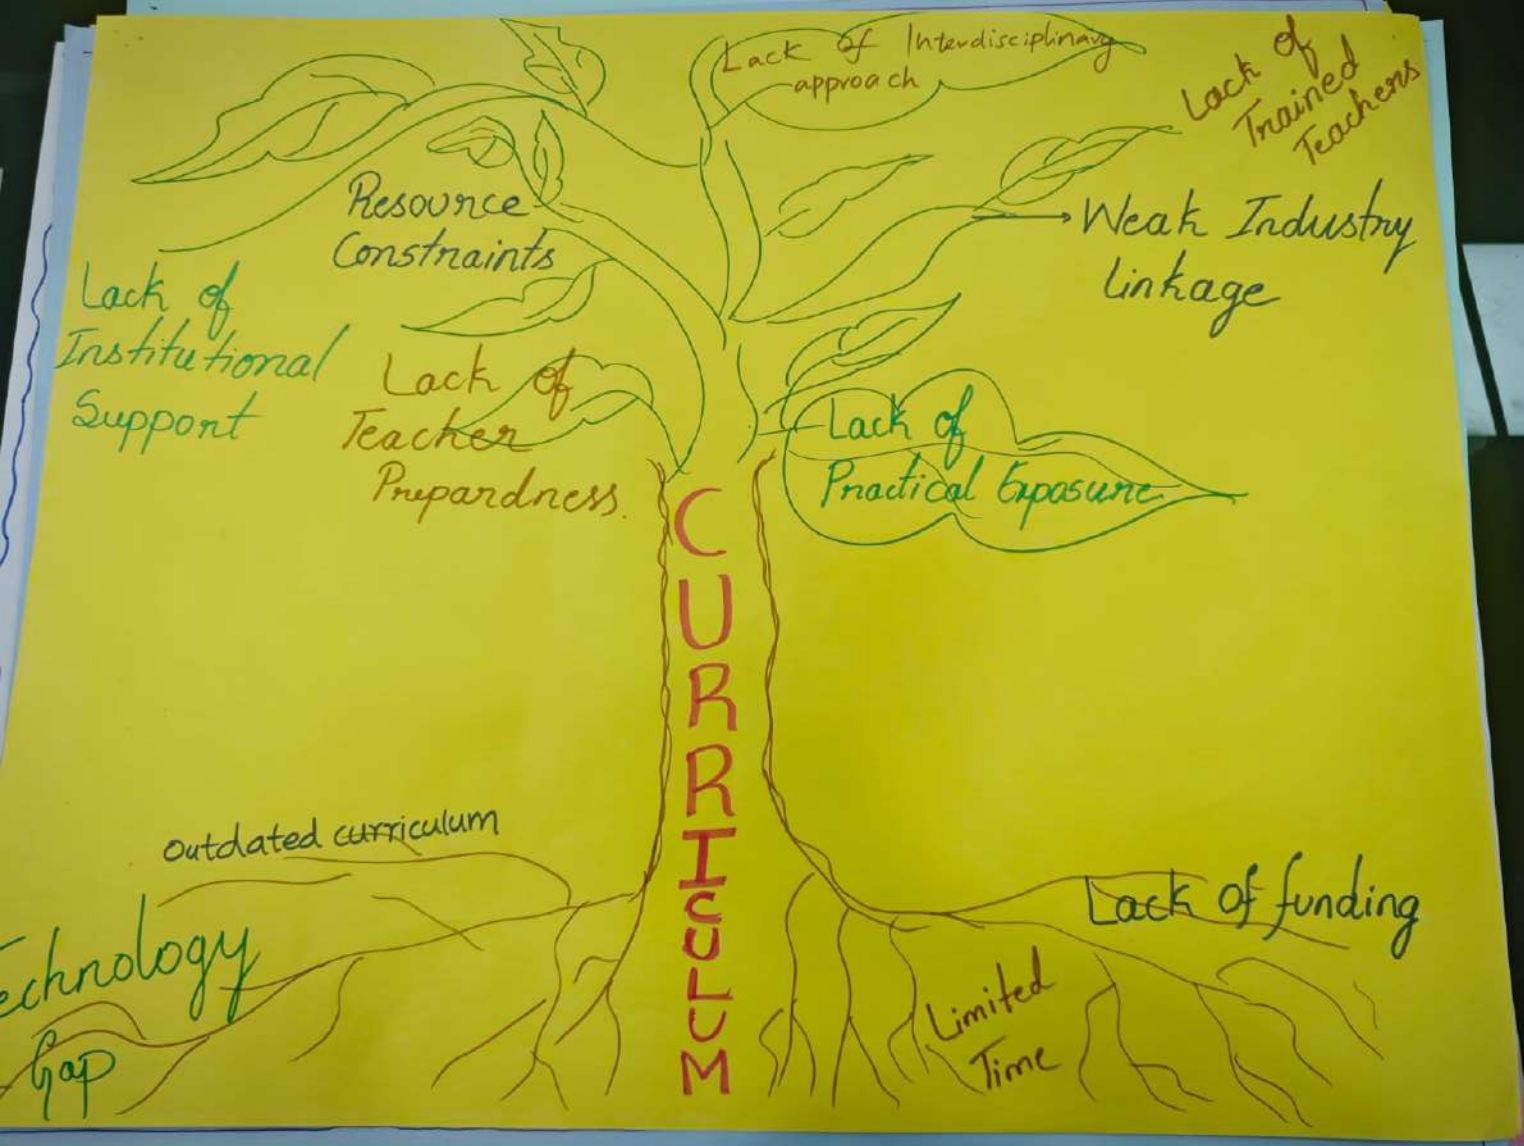 Lack of Interdisciplinary
approach
Lack of
Trained
Teachers
Resource
Constraints
Weak Industry
linkage
Lack of
Institutional
Support
Lack of
Teacher
Prepardness.
Lack of
Practical Exposure
CURRICULUM
Outdated curriculum
Lack of funding
echnology
Gap
Limited
Time